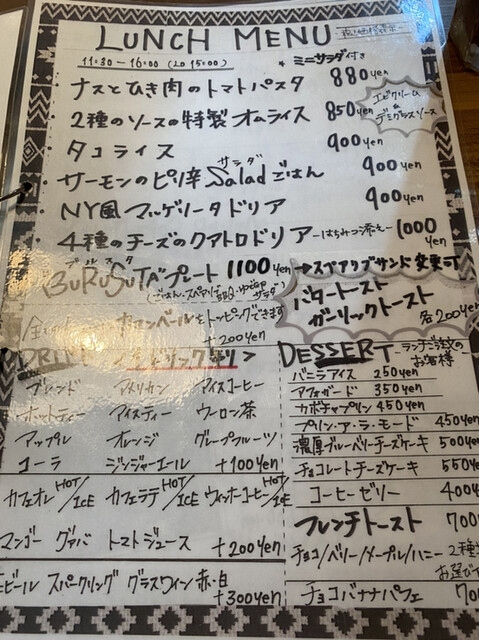 LUNCH MENU
11:30-16:00 (LO 15:00)
* ミニサラダ付き
・ナスとひき肉のトマトパスタ 880yen
・2種のソースの特製オムライス 850yen
エビクリーム & デミグラスソース
・タコライス 900yen
・サーモンのピリ辛Saladごはん 900yen
サラダ
・NY風マルゲリータドリア 900yen
・4種のチーズのクアトロドリア -はちみつ添え- 1000yen
ブルスタ
"BURUSUTA"プレート 1100yen →スペアリブサンド変更可
バタートースト
ガーリックトースト
各200yen
カマンベールをトッピングできます
+200yen
DRINK
DESSERT -ランチご注文のお客様-
バニラアイス 250yen
アフォガード 350yen
カボチャプリン 450yen
プリン・ア・ラ・モード 450yen
濃厚ブルーベリーチーズケーキ 500yen
チョコレートチーズケーキ 550yen
コーヒーゼリー 400y
フレンチトースト 700
チョコ/ベリー/メープル/ハニー 2種
お選び
チョコバナナパフェ 70
ブレンド アメリカン アイスコーヒー
ホットティー アイスティー ウーロン茶
アップル オレンジ グレープフルーツ
コーラ ジンジャーエール +100yen
カフェオレHOT/ICE カフェラテHOT/ICE ウィンナーコーヒーHOT/ICE
マンゴー グァバ トマトジュース +200yen
ビール スパークリング グラスワイン赤・白
+300yen